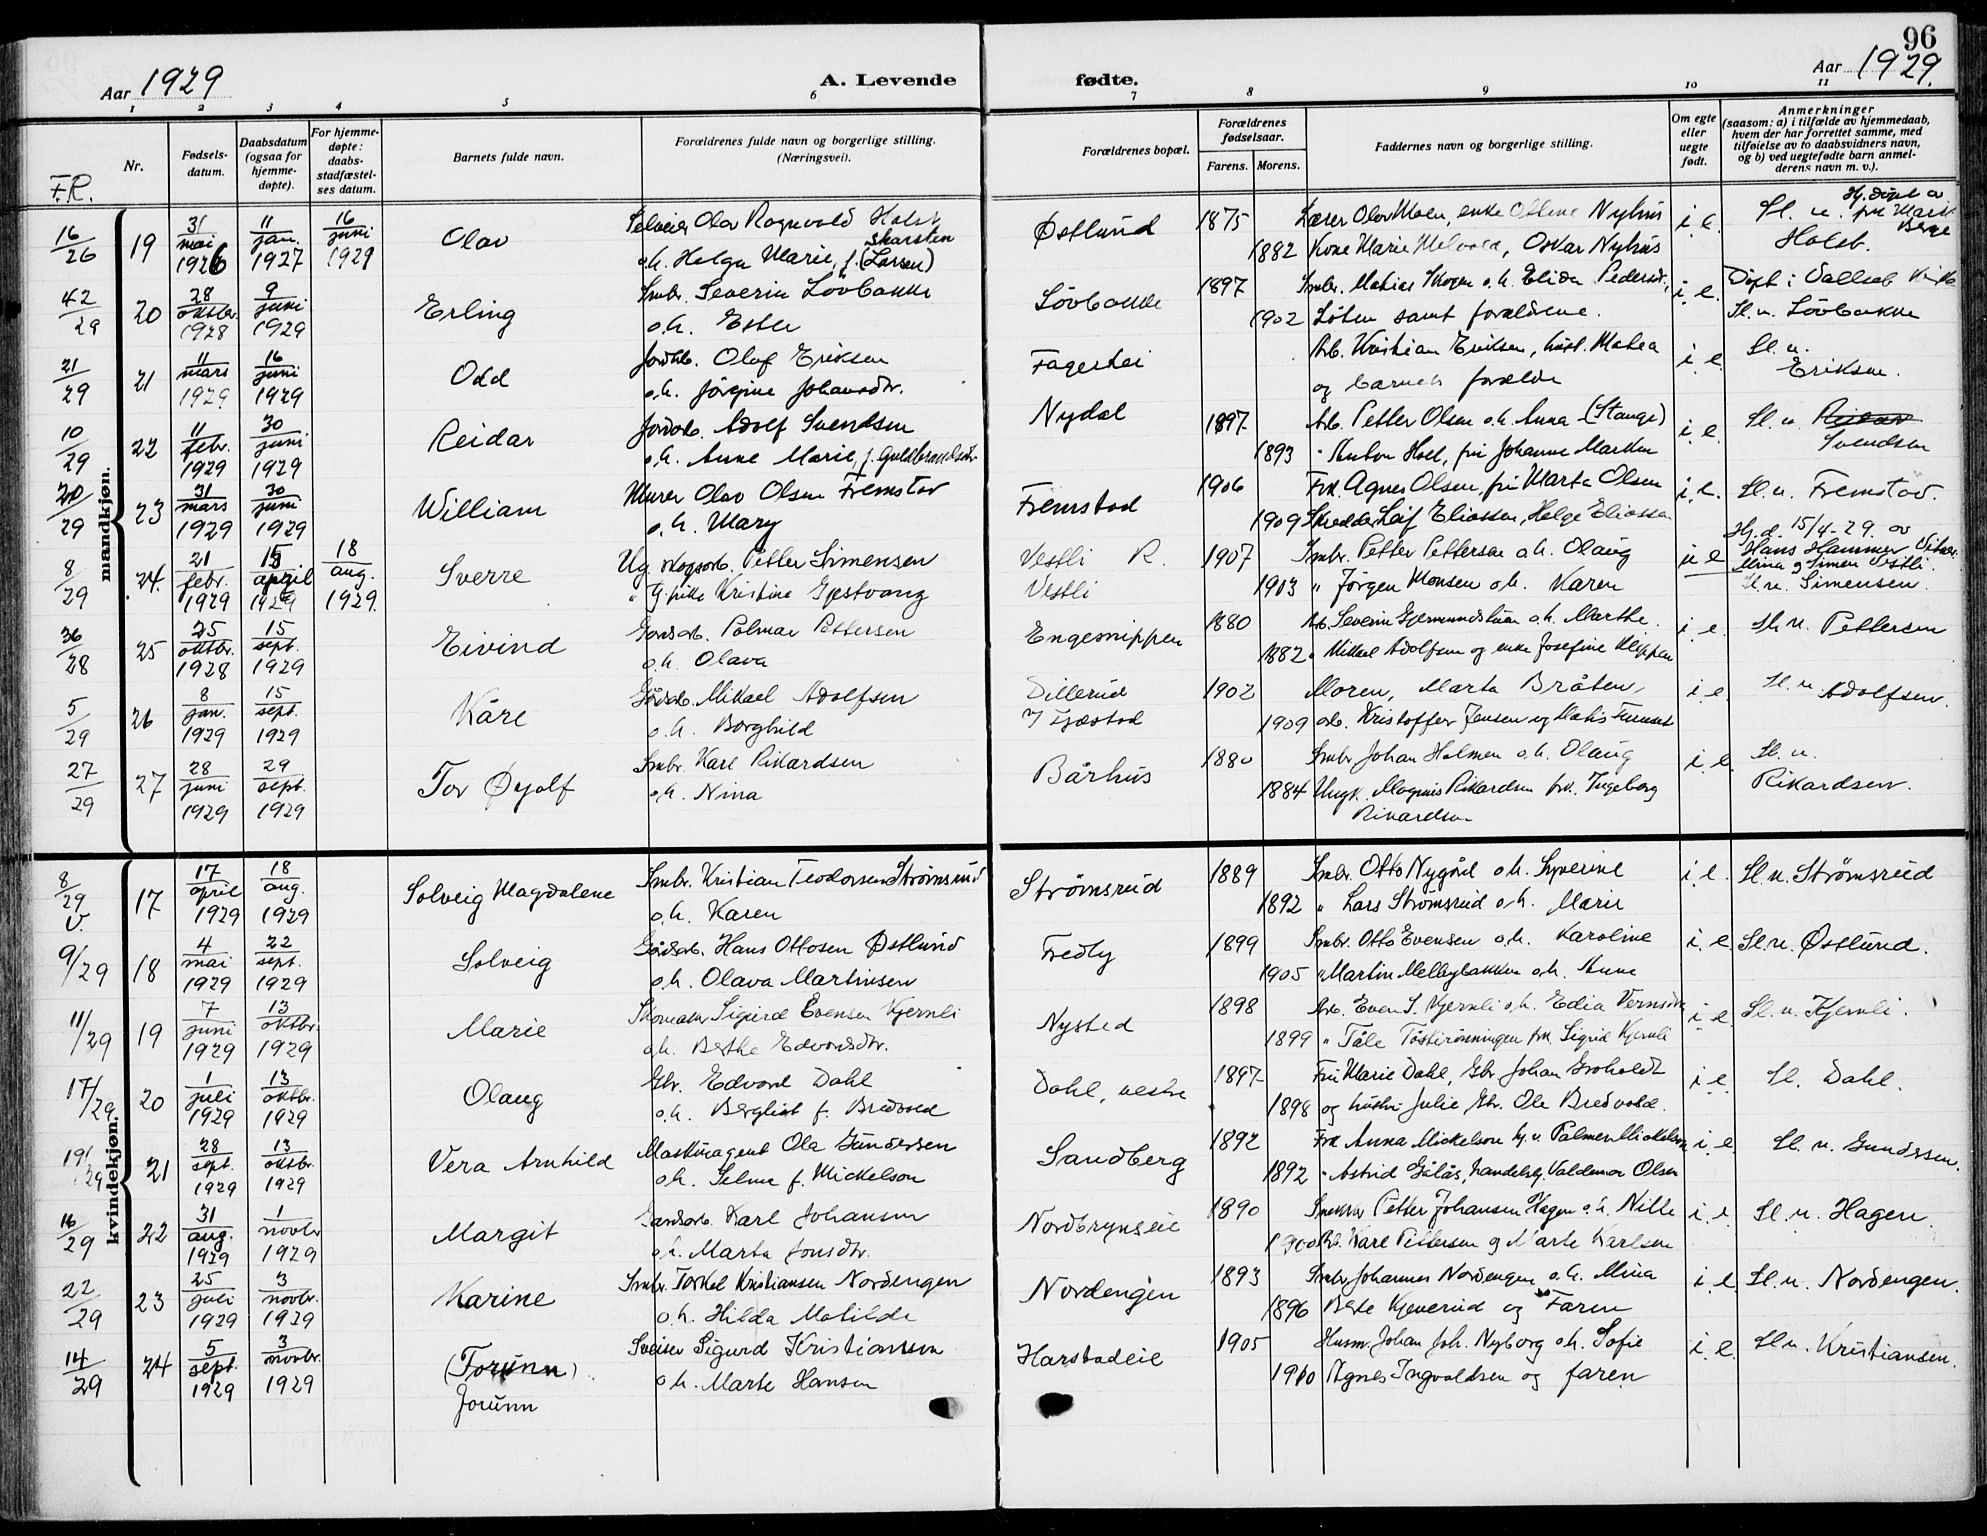 96
Aar 1929
A. Levende fødte.
Aar 1929.
1 2 3 4 5 6 7 8 9 10 11
Nr.
Fødsels-datum.
Daabsdatum (ogsaa for hjemme-døpte).
For hjemme-døpte: daabs-stadfæstel-ses datum.
Barnets fulde navn.
Forældrenes fulde navn og borgerlige stilling. (Næringsvei).
Forældrenes bopæl.
Forældrenes fødselsaar.
Farens. Morens.
Faddernes navn og borgerlige stilling.
Om egte eller uegte født.
Anmerkninger (saasom: a) i tilfælde av hjemmedaab, hvem der har forrettet samme, med tilføielse av to daabsvidners navn, og b) ved uegtefødte barn anmel-derens navn m. v.).
F.R.
mandkjøn.
16/26 19 31 mai 1926 11 jan. 1927 16 juni 1929 Olav Selveier Olav Ragnvald Holst Skarsten Østlund 1875 Olov Moen, enke Nyhus i e. Sl. n.
o.h. Helga Marie, f. (Larsen) 1882 Kone Marie Oskar Nyhus
42/29 20 28 oktbr. 1928 9 juni 1929 Erling Smbr. Severin Lövbakke Lövbakke 1897 Smbr. Matias Skogen o.h. Elida Pedersdr., i e. Døpt i Vallset Kirke
o.h. Ester 1902 Løten samt forældrene. Sl. n. Lövbakke
21/29 21 11 mars 1929 16 juni 1929 Odd Jordb. Olaf Eriksen Fagerhei Arb. Kristian Eriksen, hust. Matea i e Sl. n.
o.h. Jörgine Johansdr. og barnets forældre Eriksen.
10/29 22 11 febr. 1929 30 juni 1929 Reidar Jordarb. Adolf Svendsen Nydal 1897 Arb. Petter Olsen o.h. Anna (Stange) i e. Sl. n. Reidar
o.h. Anne Marie, f. Guldbrandsdr. 1893 " Anton Hoel, fru Johanne Marken Svendsen
20/29 23 31 mars 1929 30 juni 1929 William Murer Olav Olsen Fremstad Fremstad 1906 Frk. Agnes Olsen, fru Marta Olsen i e. Sl. n. Fremstad.
o.h. Mary 1909 Skredder Leif Eliassen, Helge Eliassen
8/29 24. 21 febr. 1929 15 april 1929 18 aug. 1929. Sverre Ug. skogsarb. Petter Simensen Vestli R. 1907 Smbr. Petter Pettersen o.h. Olaug u e Hj.d. 15/4-29 av Hans Hammer Vitner
" Pike Kristine Gjestvang Vestli 1903 " Jørgen Monsen o.h. Karen Mina og Simen Vestli. Sl. n. Simensen.
36/28 25 25 oktbr. 1928 15 sept. 1929 Eivind Gårdsarb. Palmar Pettersen Engesnippen 1880 Arb. Severin Gjermundstuen o.h. Marthe. i e. Sl. n. Pettersen
o.h. Olava 1882 " Mikael Adolfsen og enke Josefine Klippen
5/29 26 8 jan. 1929 15 sept. 1929 Kåre Gårdsarb. Mikael Adolfsen Dillerud 1902 Moren, Marta Bråten, i e Sl. n. Adolfsen.
o.h. Borghild 1909 arb. Kristoffer Jensen og
27/29 27 28 juni 1929 29 sept. 1929 Tor Øyolf Smbr. Karl Rikardsen Bårhus 1880 Smbr. Johan Holmen o.h. Olaug i e. Sl. n.
o.h. Nina 1884 Ungk. Magnus Rikardsen frk. Ingeborg Rikardsen Rikardsen.
kvindekjøn.
8/29 V. 17 17 april 1929 18 aug. 1929 Solveig Magdalene Smbr. Kristian Teodorsen Strømsrud Strømsrud 1889 Smbr. Otto Nygård o.h. Syverine i e. Sl. n. Strømsrud
o.h. Karen 1892 " Lars Strømsrud o.h. Marie
9/29 18 4 mai 1929 22 sept. 1929 Solveig Gårdsarb. Hans Ottosen Østlund Fredly 1899 Smbr. Otto Evensen o.h. Karoline i e Sl. n. Østlund.
o.h. Olava Martinsen 1905 " Martin Melbybakken o.h. Anne
11/29 19 7 juni 1929 13 oktbr. 1929 Marie Skomaker Sigurd Evensen Kjernli Nysted 1898 Arb. Even S. Kjernli o.h. Edia i e. Sl. n. Kjernli.
o.h. Berthe Edvardsdr. 1899 " Tåle frk. Sigrid Kjernli
17/29 20 1 juli 1929 13 oktbr. 1929 Olaug Gbr. Edvard Dahl Dahl, vestre 1897 Fru Marie Dahl, Gbr. Johan Groholdt i e. Sl. Dahl.
o.h. Bergliot f. Bredvold 1898 og hustru Julie, Gbr. Ole Bredvold.
19/29 21 28 sept. 1929 13 oktbr. 1929 Vera Arnhild Maskinagent Ola Gundersen Sandberg 1892 Frk. Anna Mickelson Palmer Mickelson i e Sl. n. Gundersen.
o.h. Selma f. Mickelson 1892 " Astrid Gålås, handelsb. Valdemar Olsen
16/29 22 31 aug. 1929 1 novbr. 1929 Margit Gårdsarb. Karl Johansen Nordbrynseie 1890 Snekker Petter Johansen Hagen o.h. Nille i e Sl. n. Hagen.
o.h. Marta Jonsdr. 1900 Arb. Karl Pettersen og Marte Karlsen
22/29 23 25 juli 1929 3 novbr. 1929 Karine Smbr. Torkel Kristiansen Nordengen Nordengen 1893 Smbr. Johannes Nordengen o.h. Mina i e Sl. n. Nordengen.
o.h. Hilda Matilde 1896 Berte Kjeverud og Faren
14/29 24 5 sept. 1929 3 novbr. 1929 (Torunn) Sveiser Sigurd Kristiansen Harstadeie 1905 Husm. Johan Joh. Nyborg o.h. Sofie i e. Sl. n. Kristiansen.
Jorunn o.h. Marte Hansen 1910 Agnes Ingvaldsen og faren